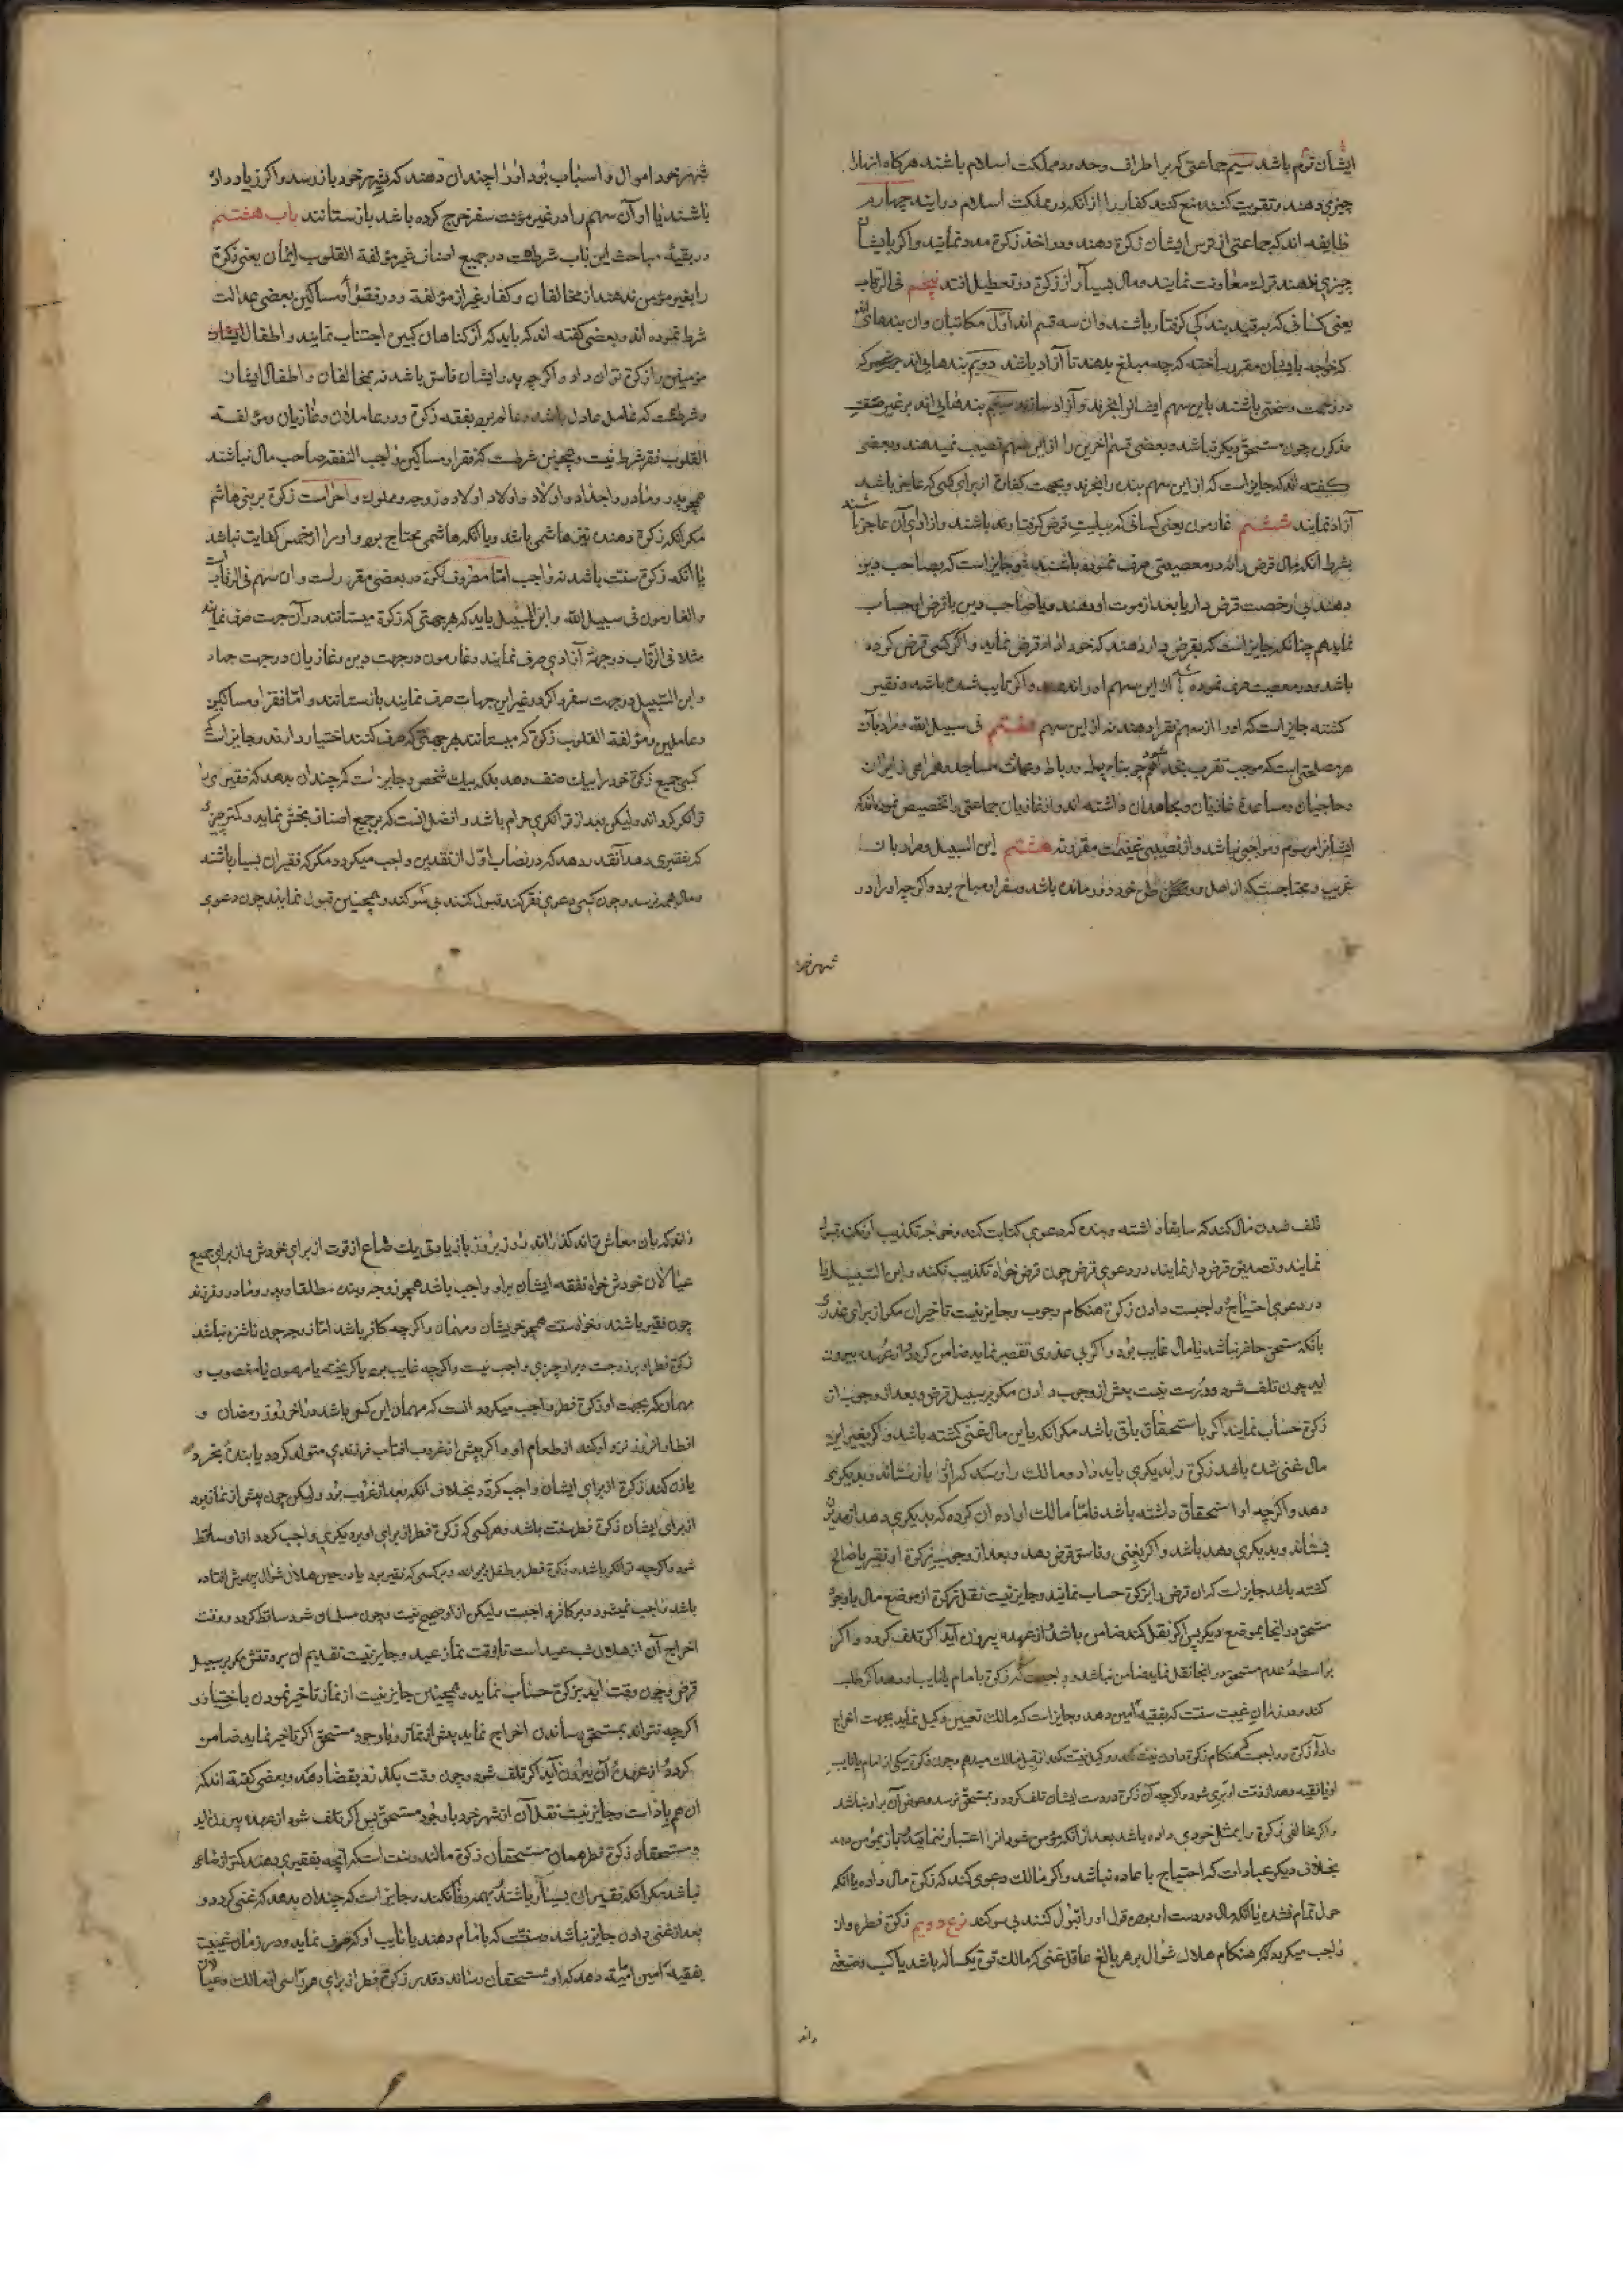 ایشان توم باشد سیم جماعتی که بر اطراف وحد ود مملکت اسلام باشند هرکاه انهارا
چیزی دهند و تقویت کنند منع کنند کفار را از آنکه در مملکت اسلام درایند چهارم
طایفه اند که جماعتی از ترس ایشان زکوة دهند ودر اخذ زکوة مدد نمایند واکر بایشان
چیزی ندهند ترک معاونت نمایند ومال بسیار از زکوة در تعطیل افتد پنجم فی الرقاب
یعنی کسانی که بر قید بندکی کرفتار باشند وان سه قسم اند اول مکاتبان وان بندهای اند
که خواجه بایشان مقرر ساخته که چه مبلغ بدهند تا آزاد باشند دویم بندهایی اند که
در زحمت وسختی باشند باین سهم ایشانرا بخرند وآزاد سازند سیم بندهایی اند بر غیر صفت
مذکور چون مستحق دیکر نباشد وبعضی قسم اخرین را از این سهم نصیب نمیدهند وبعضی
کفته اند که جایز است که از این سهم بنده را بخرند وبجهت کفارة از برای کسی که عاجز باشد
آزاد نمایند ششم غارمون یعنی کسانی که ببلیت قرض کرفتار شده باشند واز ادای آن عاجز باشند
بشرط انکه مال قرض را در معصیتی صرف ننموده باشند وجایز است که بصاحب دین
دهند بی رخصت قرض دار یا بعد از موت او دهند ویا صاحب دین باقرض او حساب
نماید هم چنانکه جایز است که بقرض دار دهند که خود اداء قرض نماید واکر کسی قرض کرده
باشد ودر معصیت صرف نموده باشد از این سهم اورا ندهند واکر تایب شده باشد وفقیر
کشته جایز است که اورا از سهم فقرا دهند نه از این سهم هفتم فی سبیل الله ومراد بآن
هر مصلحتی است که موجب تقرب بخدا شود همچو بناء پل ورباط وعمارت مساجد وهمراهی زایران
وحاجیان ومساعدة غازیان ومجاهدان داشته اند واز غازیان جماعتی را تخصیص نموده اند که
ایشانرا مرسوم ومواجبی نباشد واز نصیبی غنیمت مقرر نه هشتم ابن السبیل ومراد بان
غریب ومحتاجیست که از اهل و وطن خود دور مانده باشد وسفر او مباح بود واکرچه اورا در
شهر خود
شهر خود اموال واسباب بود اورا چندان دهند که بشهر خود باز رسد واکر زیاد داده
باشند یا او آن سهم را در غیر مؤنت سفر خرج کرده باشد باز ستانند باب هفتم
در بقیه مباحث این باب شرطست در جمیع اصناف غیر مؤلفة القلوب ایمان یعنی زکوة
را بغیر مؤمن ندهند از مخالفان وکفار غیر از مؤلفة ودر فقرا ومساکین بعضی عدالت
شرط نموده اند وبعضی کفته اند که باید که از کناهان کبیره اجتناب نمایند واطفال ایشان
مؤمنین را زکوة توان داد واکرچه پدر ایشان فاسق باشد نه بمخالفان واطفال ایشان
وشرطست که عامل عادل باشد وعالم بود بفقه زکوة ودر عاملان وغازیان ومؤلفة
القلوب فقر شرط نیست وهمچنین شرطست که فقرا ومساکین واجب النفقه صاحب مال نباشند
همچو پدر ومادر واجداد واولاد واولاد اولاد وزوجه ومملوک وحرامست زکوة بر بنی هاشم
مکر انکه زکوة دهنده نیز هاشمی باشد ویا انکه هاشمی محتاج بود واورا از خمس کفایت نباشد
یا انکه زکوة سنت باشد نه واجب امّا مصرف زکوة در بعضی مقرر است وان سهم فی الرقاب است
والغارمون فی سبیل الله وابن السبیل باید که هر جهتی که زکوة میستانند در آن جهت صرف نمایند
مثلا فی الرقاب در جهة آزادی صرف نمایند وغارمون در جهت دین وغازیان در جهت جهاد
وابن السبیل در جهت سفر واکر در غیر این جهات صرف نمایند باز ستانند وامّا فقرا ومساکین
وعاملین ومؤلفة القلوب زکوة که میستانند بهر جهتی که صرف کنند اختیار دارند وجایز است که
کسی جمیع زکوة خود را بیک صنف دهد بلکه بیک شخص وجایز است که چندان بدهد که فقیری را
توانکر کرداند ولیکن بعد از توانکری حرام باشد وافضل انست که بر جمیع اصناف بخش نماید وکمتر چیزی
که بفقیری دهد آنقدر دهد که در نصاب اول از نقدین واجب میکردد مکر که فقیران بسیار باشند
ومال بهمه نرسد وچون کسی دعوی فقر کند قبول کنند بی سوکند وهمچنین قبول نمایند چون دعوی
تلف شدن مال کند که سابقا داشته وبنده که دعوی کتابت کند وخواجه تکذیب او نکند قبول
نمایند وتصدیق قرض دار نمایند در دعوی قرض چون قرض خواه تکذیب نکند وابن السبیل را
در دعوی احتیاج واجبست دادن زکوة هنکام وجوب وجایز نیست تاخیر ان مکر از برای عذری
بانکه مستحق حاضر نباشد یا مال غایب بود واکر بی عذری تقصیر نماید ضامن کردد واز عهده بیرون
اید چون تلف شود ودرست نیست پیش از وجوب دادن مکر بر سبیل قرض وبعد از وجوب از
زکوة حساب نمایند اکر با استحقاق باقی باشد مکر انکه باین مال غنی کشته باشد واکر بغیر این
مال غنی شده باشد زکوة را بدیکری باید داد ومالک را رسد که از او باز ستاند وبدیکری
دهد واکرچه او استحقاق داشته باشد فامّا مالک اراده ان کرده که بدیکری دهد از مدیون
بستاند وبدیکری دهد باشد واکر بغنی وفاسق قرض دهد وبعد از وجوب زکوة او فقیر یا صالح
کشته باشد جایز است که ان قرض را بزکوة حساب نمایند وجایز نیست نقل زکوة از موضع مال باوجود
مستحق در انجا بموضع دیکر پس اکر نقل کند ضامن باشد واز عهده بیرون آید اکر تلف کردد واکر
بواسطه عدم مستحق در انجا نقل نماید ضامن نباشد وواجبست که زکوة باما م یا نایب او دهد اکر طلب
کند ودر زمان غیبت سنتست که بفقیه امین دهد وجایز است که مالک تعیین وکیل نماید بجهت اخراج
واداء زکوة وواجبست که هنکام زکوة دادن نیت کند ووکیل نیت کند از قبل مالک میدهم وچون زکوة بیکی از امام یا نایب
او یا فقیه دهد از ذمت او بری شود واکرچه آن زکوة در دست ایشان تلف کردد وبمستحق نرسد وعوض آن بر او نباشد
واکر مخالفی زکوة را بمثل خودی داده باشد بعد از انکه مؤمن شود انرا اعتبار ننمایند وباز بمؤمن دهد
بخلاف دیکر عبادات که احتیاج با عاده نباشد واکر مالک دعوی کند که زکوة مال داده یا انکه
حول تمام نشده یا انکه مال در دست او نبوده قول اورا قبول کنند بی سوکند نوع دویم زکوة فطره وان
واجب میکردد هنکام هلال شوال بر هر بالغ عاقل غنی که مالک قوت یکساله باشد یا کسب وصنعتی
داند
داند که بان معاش تواند کذرانند روز بروز باز یادتی یک صاع از قوت از برای خودش واز برای جمیع
عیالان خودش خواه نفقه ایشان بر او واجب باشد همچو زوجه وبنده مطلقا وپدر ومادر وفرزند
چون فقیر باشند وخواه سنت همچو خویشان ومهمان واکرچه کافر باشد امّا زوجه چون ناشزه نباشد
زکوة فطر او بر زوجست وبر او چیزی واجب نیست واکرچه غایب بود یا کریخته یا مرهون یا مغصوب و
مهمان که بجهت او زکوة فطر واجب میکردد انست که مهمان این کس باشد در اخر روز رمضان و
افطار انروز نزد او کند از طعام او واکر پیش از غروب افتاب فرزندی متولد کردد یا بنده بخرد
یا زن کند زکوة از برای ایشان واجب کردد بخلاف انکه بعد از غروب بود ولیکن چون پیش از نماز بود
از برای ایشان زکوة فطر سنت باشد وهر کسی که زکوة فطر از برای او بر دیکری واجب کردد از او ساقط
شود واکرچه توانکر باشد وزکوة فطر بر طفل ودیوانه وبر کسی که فقیر بود یا در حین هلال شوال بیهوش افتاده
باشد واجب نمیشود وبر کافر واجبست ولیکن از او صحیح نیست وچون مسلمان شود ساقط کردد ووقت
اخراج آن از هلال شب عید است تا وقت نماز عید وجایز نیست تقدیم ان بر وقتش مکر بر سبیل
قرض وچون وقت اید بزکوة حساب نماید وهمچنین جایز نیست از نماز تاخیر نمودن باختیار و
اکرچه نتواند بمستحق رساندن اخراج نماید پیش از نماز وباوجود مستحق اکر تاخیر نماید ضامن
کردد واز عهده آن بیرون آید اکر تلف شود وچون وقت بکذرد بقضا دهد وبعضی کفته اند که
ان هم بادا است وجایز نیست نقل آن از شهر خود باوجود مستحق پس اکر تلف شود از عهده بیرون اید
ومستحقان زکوة فطر همان مستحقان زکوة مالند وسنت است که انچه بفقیری دهند کمتر از صاع
نباشد مکر انکه فقیران بسیار باشند بهمه وفا نکند وجایز است که چندان بدهد که غنی کردد و
بعد از غنی دادن جایز نباشد وسنتست که باما م دهند یا نایب او که صرف نماید ودر زمان غیبت
بفقیه امین امامیه دهد که او بمستحقان رساند وقدر زکوة فطر از برای هر راسی از مالک وعیالان